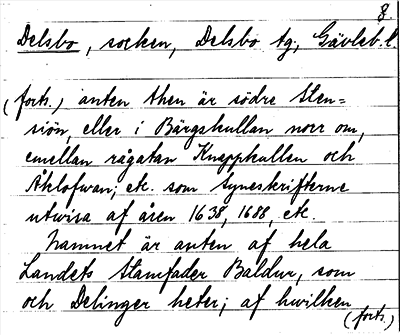 8.
Delsbo, socken, Delsbo tg, Gävleb. l.
(forts.) anten then är södre Sten=
siön, eller i Bärgskullan norr om,
emellan rågatan Knappkullen och
Åklofwan; etc. som syneskrifterne
utwisa af åren 1638, 1688, etc.
Namnet är anten af hela
Landets Stamfader Baldur, som
och Delinger heter; af hwilken
(forts.)